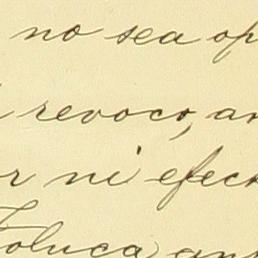 no sea op
revoco, an
r ni efect
Toluca ant